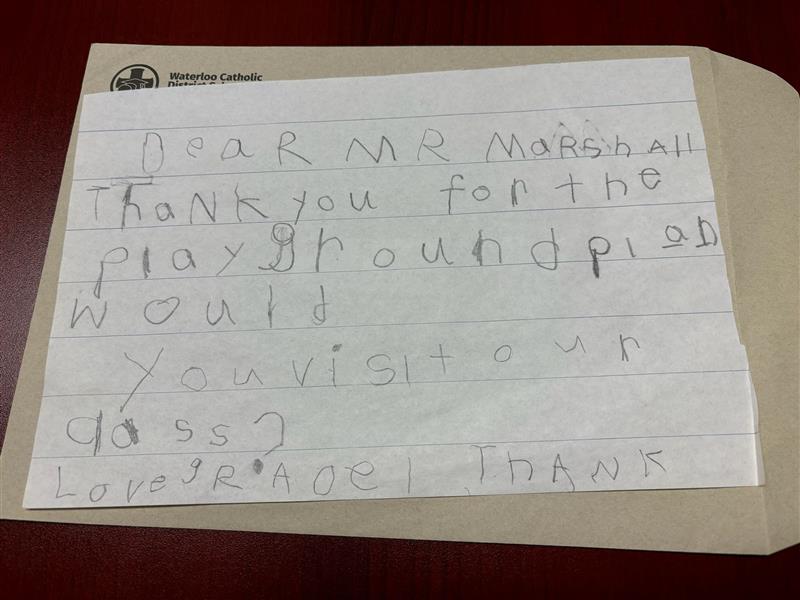 Waterloo Catholic
District
Dear MR MaRSh All
ThaNK you for the
playground plan
would
you visit our
class?
Love gRAde 1 ThANK